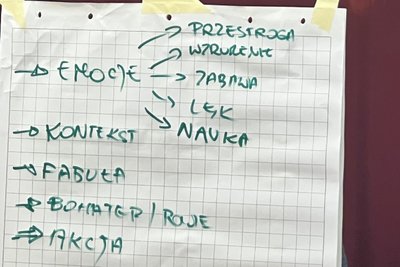 → EMOCJE
→ PRZESTROGA
→ WZRUSZENIE
→ ZABAWA
→ LĘK
→ NAUKA
→ KONTEKST
→ FABUŁA
→ BOHATER / ROLE
→ AKCJA